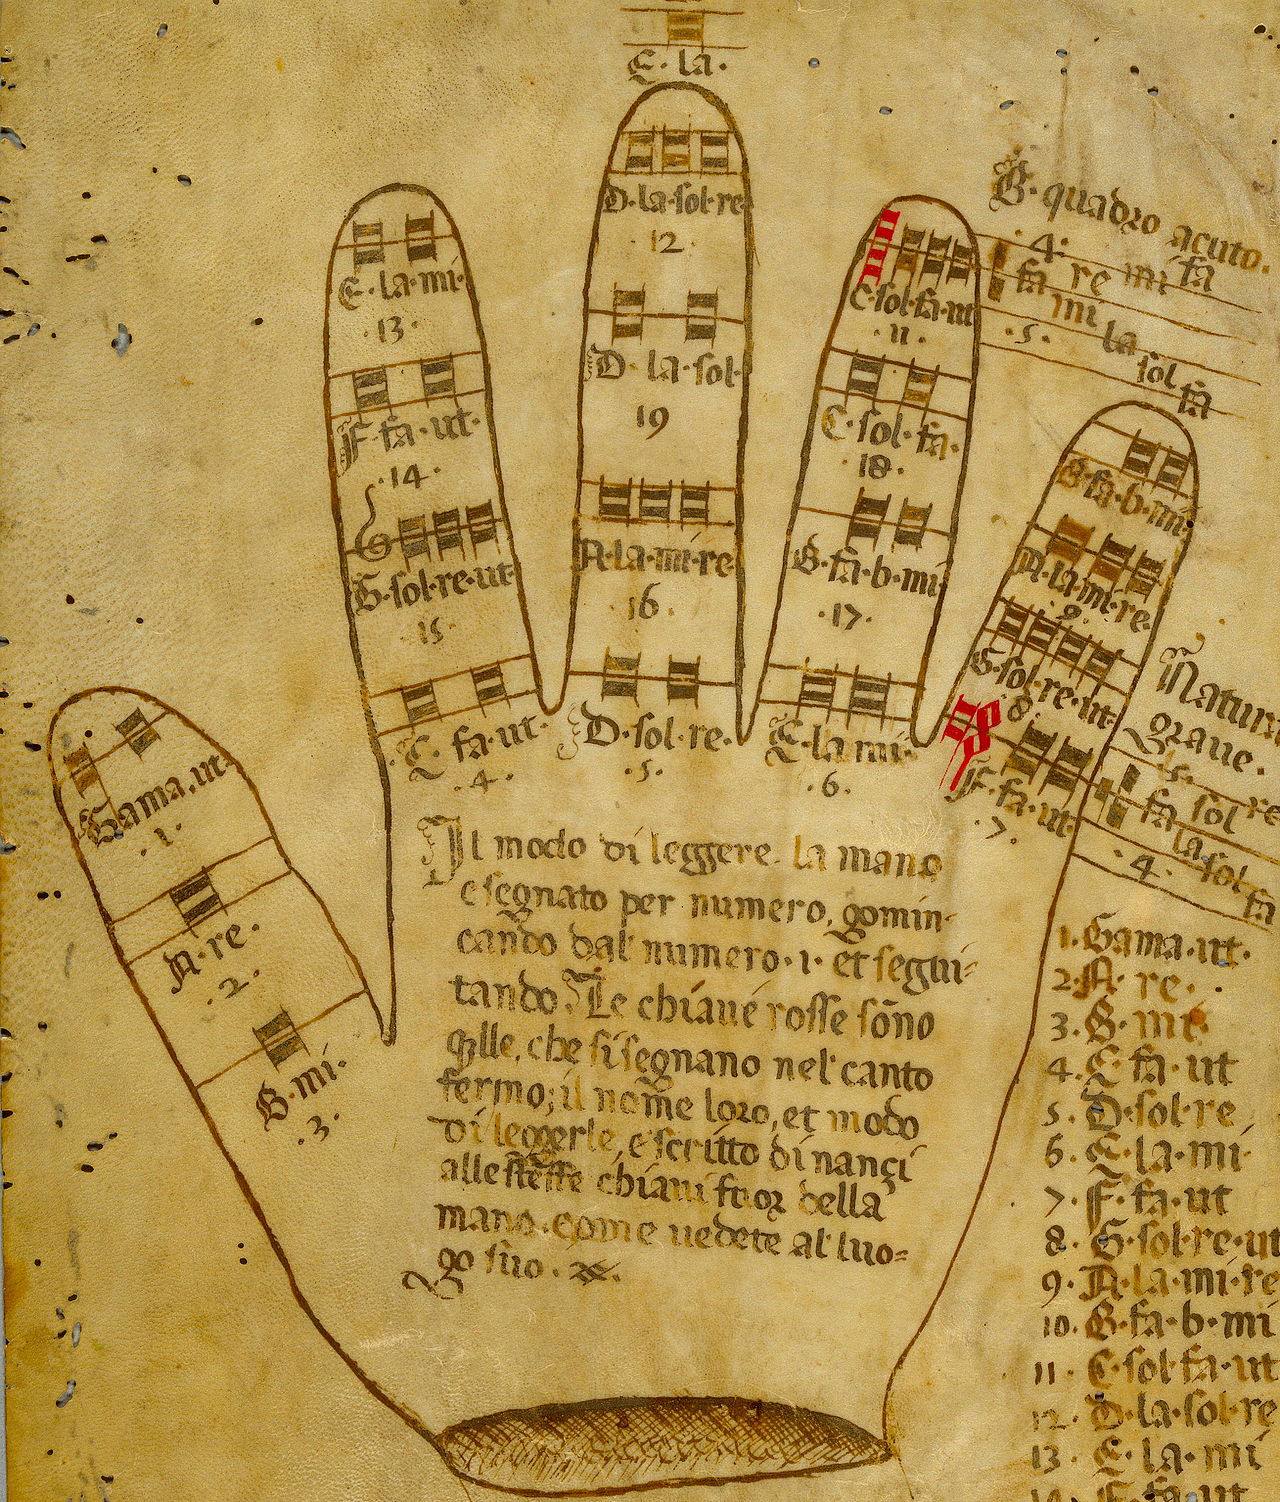 E · la ·
D · la · sol · re
· 12 ·
E · la · mi ·
· 13 ·
C · sol · fa · ut
· 11 ·
B · quadro acuto.
· 4 ·
fa re mi fa
mi la
· 5 ·
sol fa
D · la · sol ·
19
F · fa · ut ·
· 14 ·
C · sol · fa ·
· 18 ·
B · fa · b · mi ·
G
G · sol · re · ut
· 15 ·
A · la · mi · re
· 16 ·
B · fa · b · mi
· 17 ·
A · la · mi · re
· 9 ·
G · sol · re · ut
· 8 ·
C · fa · ut ·
· 4 ·
D · sol · re ·
· 5 ·
E · la · mi ·
· 6 ·
F · fa · ut
· 7 ·
Natura
graue.
fa sol re
la sol
· 4 ·
fa
Gama · ut ·
· 1 ·
A · re ·
· 2 ·
B · mi ·
· 3 ·
Il modo di leggere la mano
e segnato per numero, gomin-
cando dal numero · 1 · et seghui=
tando. Le chiaue rosse sōno
q̄lle, che si segnano nel canto
fermo; il nome loro, et modo
di leggerle, e scritto dinançi
alle stesse chiaui fuor della
mano, come uedete al luo=
go suo.
1. Gama · ut ·
2. A · re ·
3. B · mi ·
4. C fa · ut
5. D · sol · re
6. E · la · mi ·
7. F · fa · ut
8. G · sol · re · ut
9. A · la · mi · re
10. B · fa · b · mi
11. C · sol · fa · ut
12. D · la · sol · re
13. E · la · mi
14. F · fa · ut